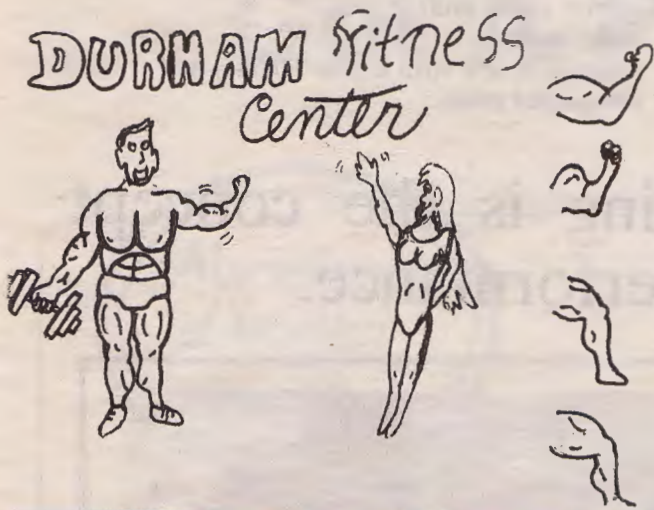 DURHAM Fitness
Center